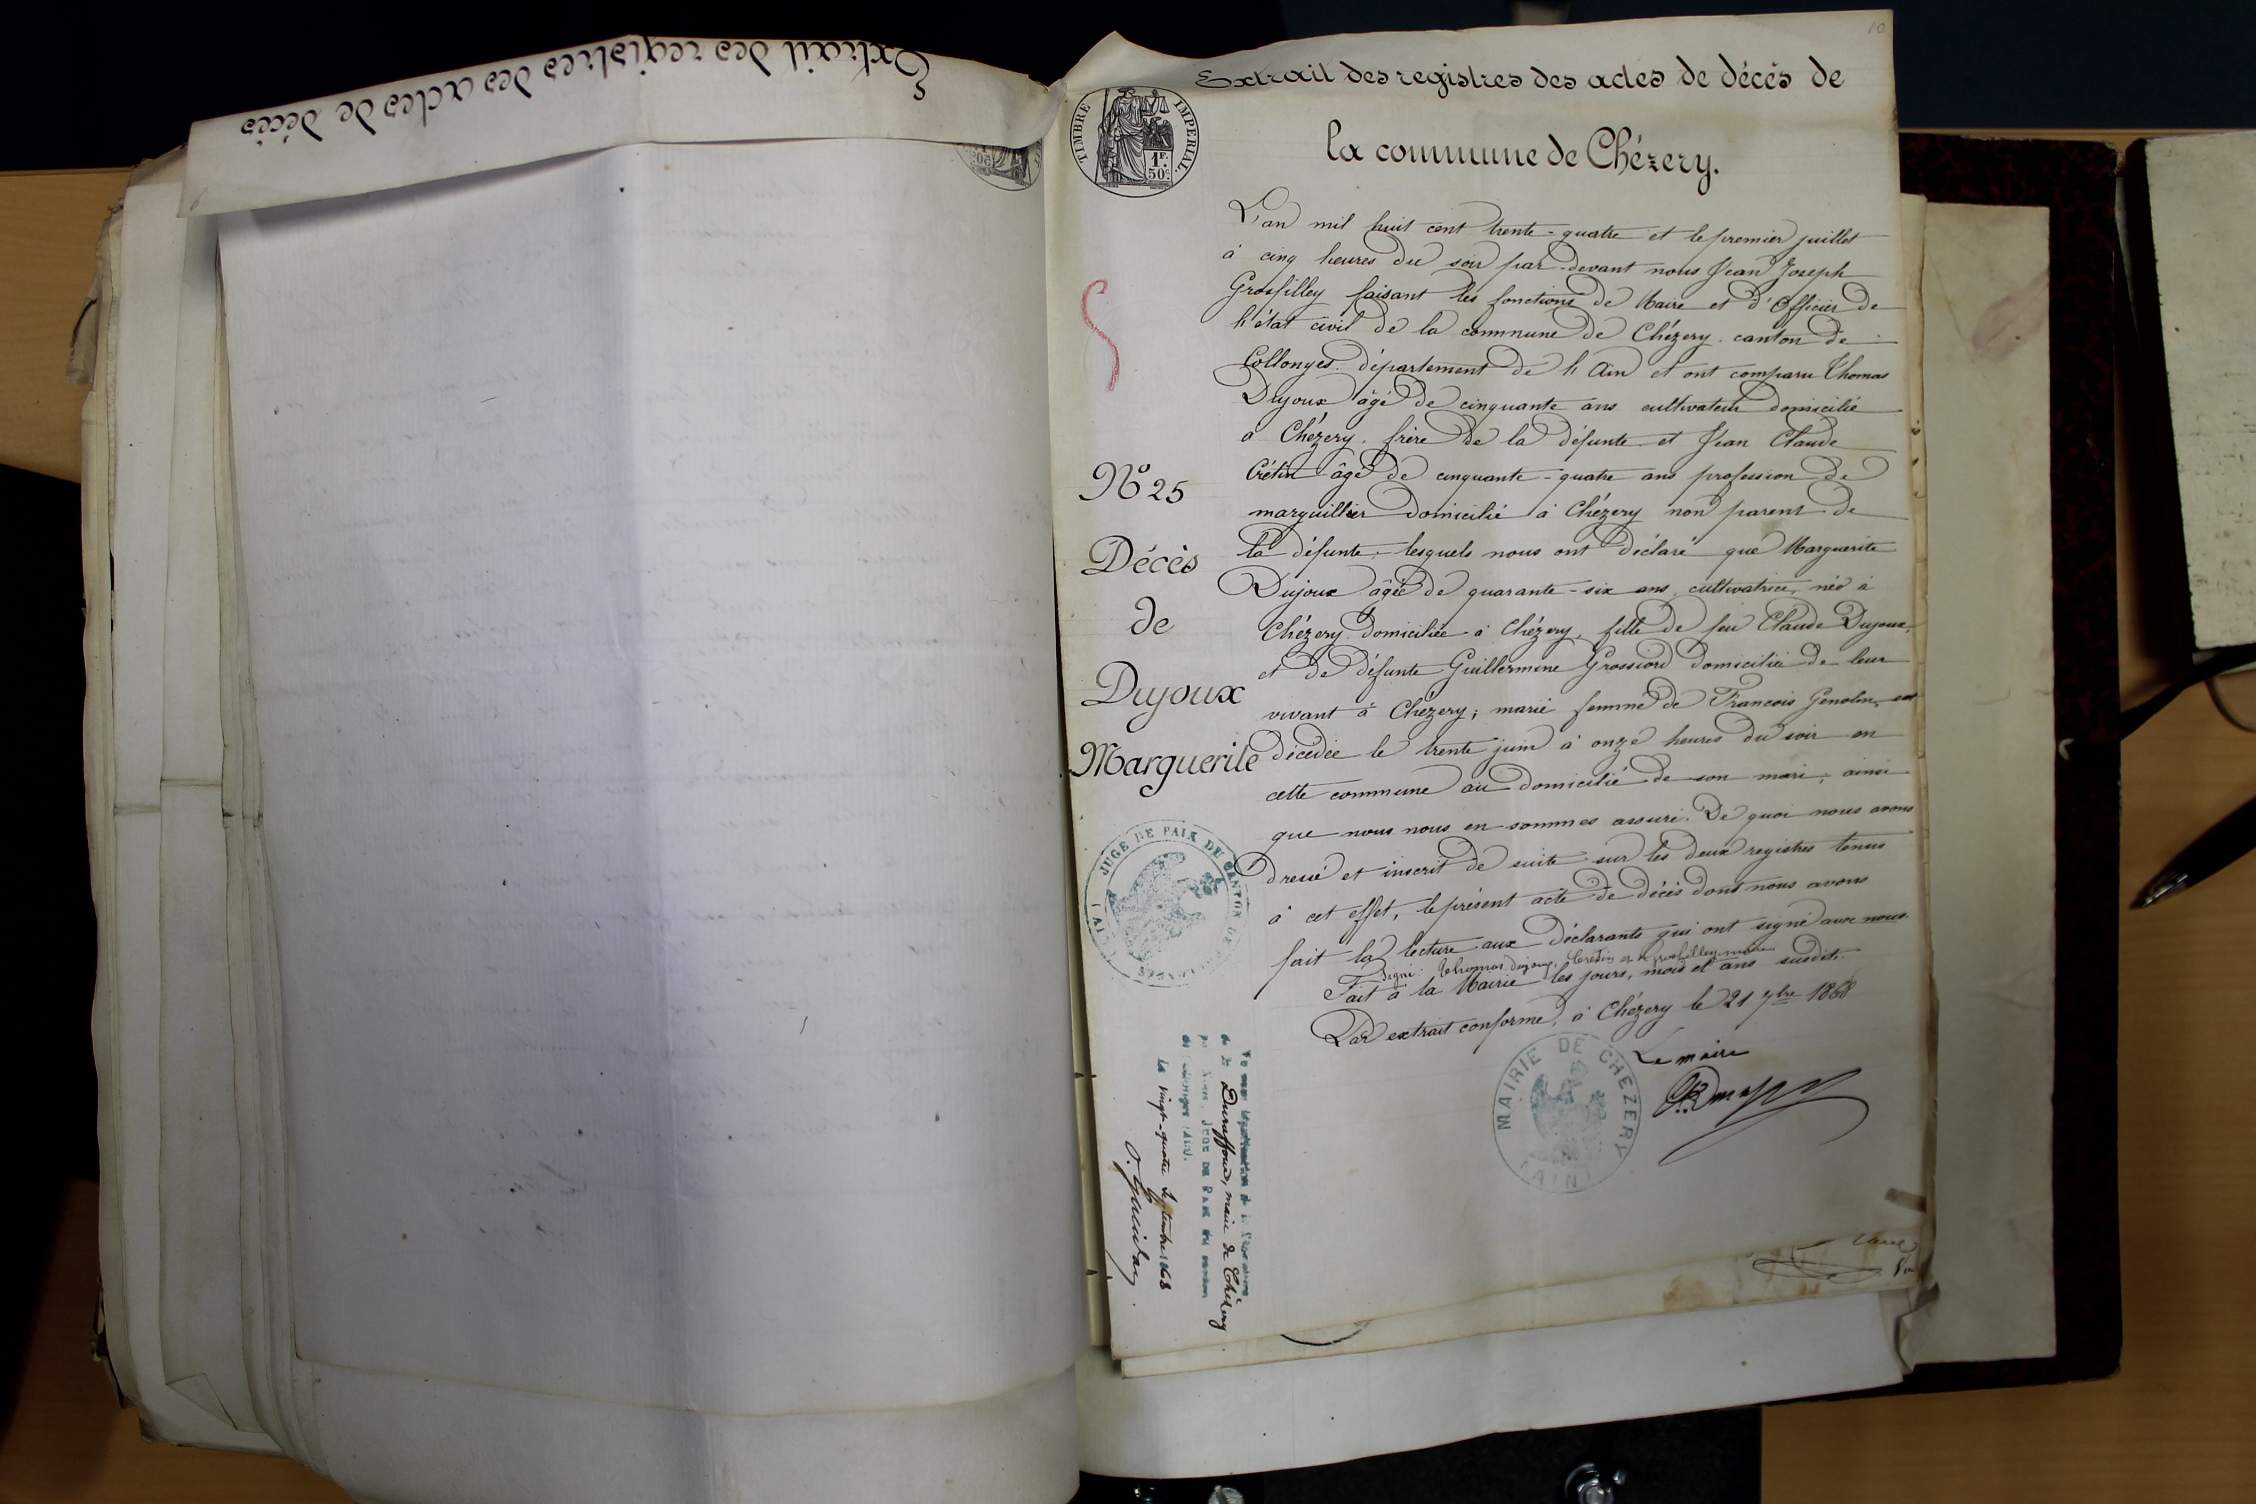 Extrait des registres des actes de décès
10
Extrait des registres des actes de décès de
la commune de Chézery.
TIMBRE IMPERIAL.
1F. 50c.
L'an mil huit cent trente-quatre et le premier juillet
à cinq heures du soir par-devant nous Jean Joseph
Grosfilley faisant les fonctions de Maire et d'Officier de
l'état civil de la commune de Chézery. canton de
Collonges. département de l'Ain et ont comparu Thomas
Dujoux âgé de cinquante ans cultivateur domicilié
à Chézery. frère de la défunte et Jean Claude
Crétin âgé de cinquante-quatre ans profession de
marguillier domicilié à Chézery non parent de
la défunte. lesquels nous ont déclaré que Marguerite
Dujoux âgée de quarante-six ans, cultivatrice, née à
Chézery domiciliée à Chézery, fille de feu Claude Dujoux,
et de défunte Guillermine Grossiord domicilié de leur
vivant à Chézery; marié femme de François Genolin, est
décédée le trente juin à onze heures du soir en
cette commune au domicilié de son mari, ainsi
que nous nous en sommes assuré. De quoi nous avons
dressé et inscrit de suite sur les deux registres tenus
à cet effet, le présent acte de décès dont nous avons
fait la lecture aux déclarants qui ont signé avec nous.
Signé: Thomas Dujoux, Crétin et Grosfilley maire
Fait à la Mairie les jours, mois et ans susdits.
Par extrait conforme, à Chézery le 21 7bre 1868
Le maire
MAIRIE DE CHEZERY (AIN)
N° 25
Décès
de
Dujoux
Marguerite
JUGE DE PAIX DU CANTON DE COLLONGES (AIN)
Vu pour légalisation de la signature
de Mr Duraffour, maire de Chézery
par nous, JUGE DE PAIX du canton
de Collonges (AIN).
Le vingt-quatre Septembre 1868